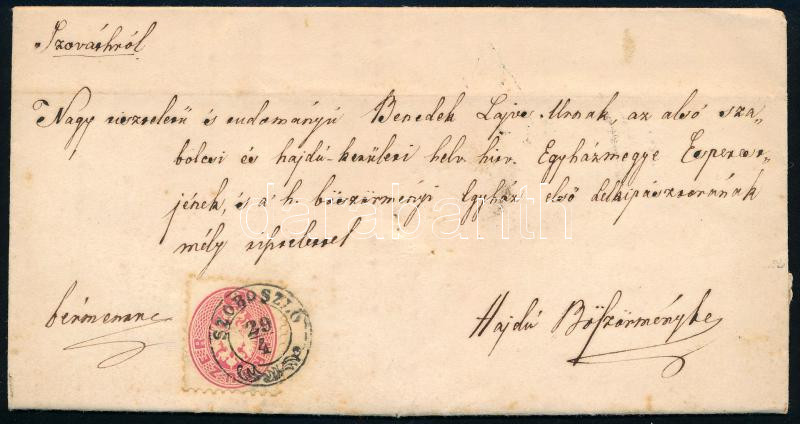 Szováthról
Nagy tiszteletű és tudományú Benedek Lajos Urnak, az alsó sza-
bolcsi és hajdú-kerületi helv. hitv. Egyházmegye Esperes-
jének, és a' h. böszörményi Egyház első lelkipásztorának
mély tisztelettel
bérmentve
Hajdú Böszörménybe
SZOBOSZLÓ
29
4
darabanth